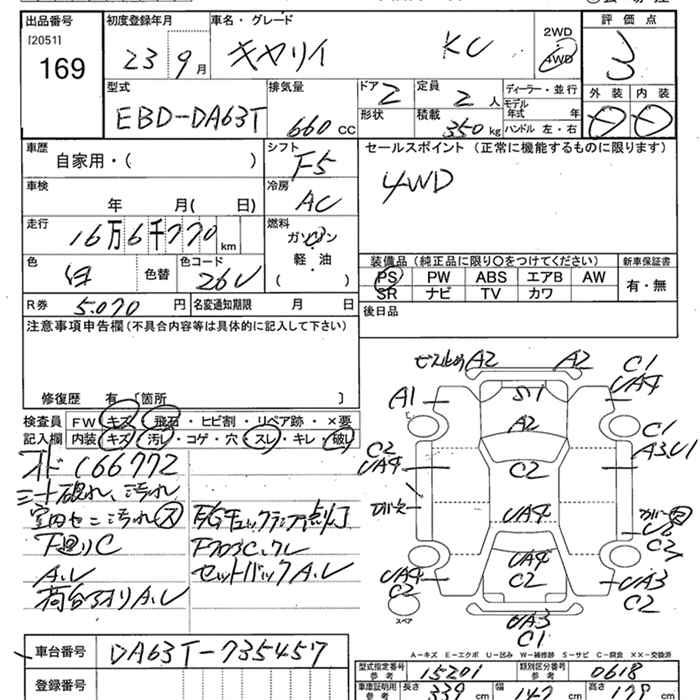 出品番号 初度登録年月 車名・グレード 評価点
[2051]
169 23 9月 キャリイ KC 2WD 4WD 3
外装 内装
型式 排気量 ドア 2 定員 2人 ディーラー・並行
モデル年式 年
EBD-DA63T 660cc 形状 積載 350kg ハンドル 左・右
車歴 シフト F5 セールスポイント(正常に機能するものに限ります)
自家用・( ) 4WD
車検 冷房 AC
年 月( 日)
走行 燃料
16万6千770km ガソリン
軽・油
( )
色 白 色替 色コード 26U
装備品(純正品に限り○をつけてください) 新車保証書
PS PW ABS エアB AW 有・無
SR ナビ TV カワ
R券 5.070円 名変通知期限 月 日 後日品
注意事項申告欄(不具合内容等は具体的に記入して下さい)
修復歴 有 [箇所 ]
検査員 FW キズ・飛石・ヒビ割・リペア跡・×要
記入欄 内装 キズ・汚レ・コゲ・穴・スレ・キレ・破レ
オド166772
シート破れ、汚れ
下廻りC
A.U
A2 A2 C1
UA4
A1 S1 A2 C1
A3,U1
C2 UA4 C2
UA4
U3
C2
UA4 C2 UA4 C2 UA3 C2
スペア
UA3
C1
A-キズ E-エクボ U-凹み W-補修跡 S-サビ C-腐食 ××-交換済
車台番号 DA63T-735457
型式指定番号 参考 15201 類別区分番号 参考 0618
登録番号 車庫証明用 参考 長さ 339cm 幅 147cm 高さ 178cm